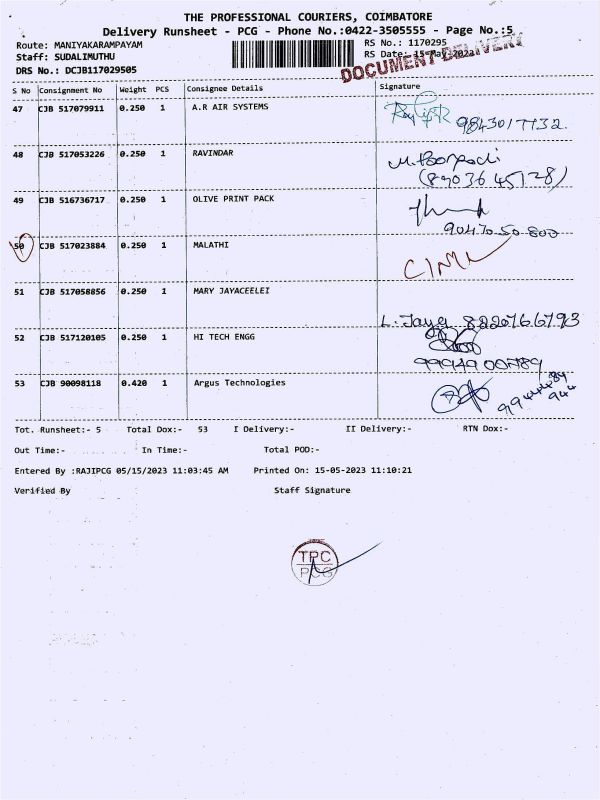 THE PROFESSIONAL COURIERS, COIMBATORE
Delivery Runsheet - PCG - Phone No.:0422-3505555 - Page No.:5
Route: MANIYAKARAMPAYAM
RS No.: 1170295
Staff: SUDALIMUTHU
RS Date: 15-May-2023
DRS No.: DCJB117029505
DOCUMENT DELIVERY
S No Consignment No Weight PCS Consignee Details Signature
47 CJB 517079911 0.250 1 A.R AIR SYSTEMS
9843017732.
48 CJB 517053226 0.250 1 RAVINDAR
(89036 45128)
49 CJB 516736717 0.250 1 OLIVE PRINT PACK
90470 50 800
50 CJB 517023884 0.250 1 MALATHI
51 CJB 517058856 0.250 1 MARY JAYACEELEI
L. Jaya 8220766793
52 CJB 517120105 0.250 1 HI TECH ENGG
99949 00789
53 CJB 90098118 0.420 1 Argus Technologies
Tot. Runsheet:- 5 Total Dox:- 53 I Delivery:- II Delivery:- RTN Dox:-
Out Time:- In Time:- Total POD:-
Entered By :RAJIPCG 05/15/2023 11:03:45 AM Printed On: 15-05-2023 11:10:21
Verified By Staff Signature
TPC
PCG